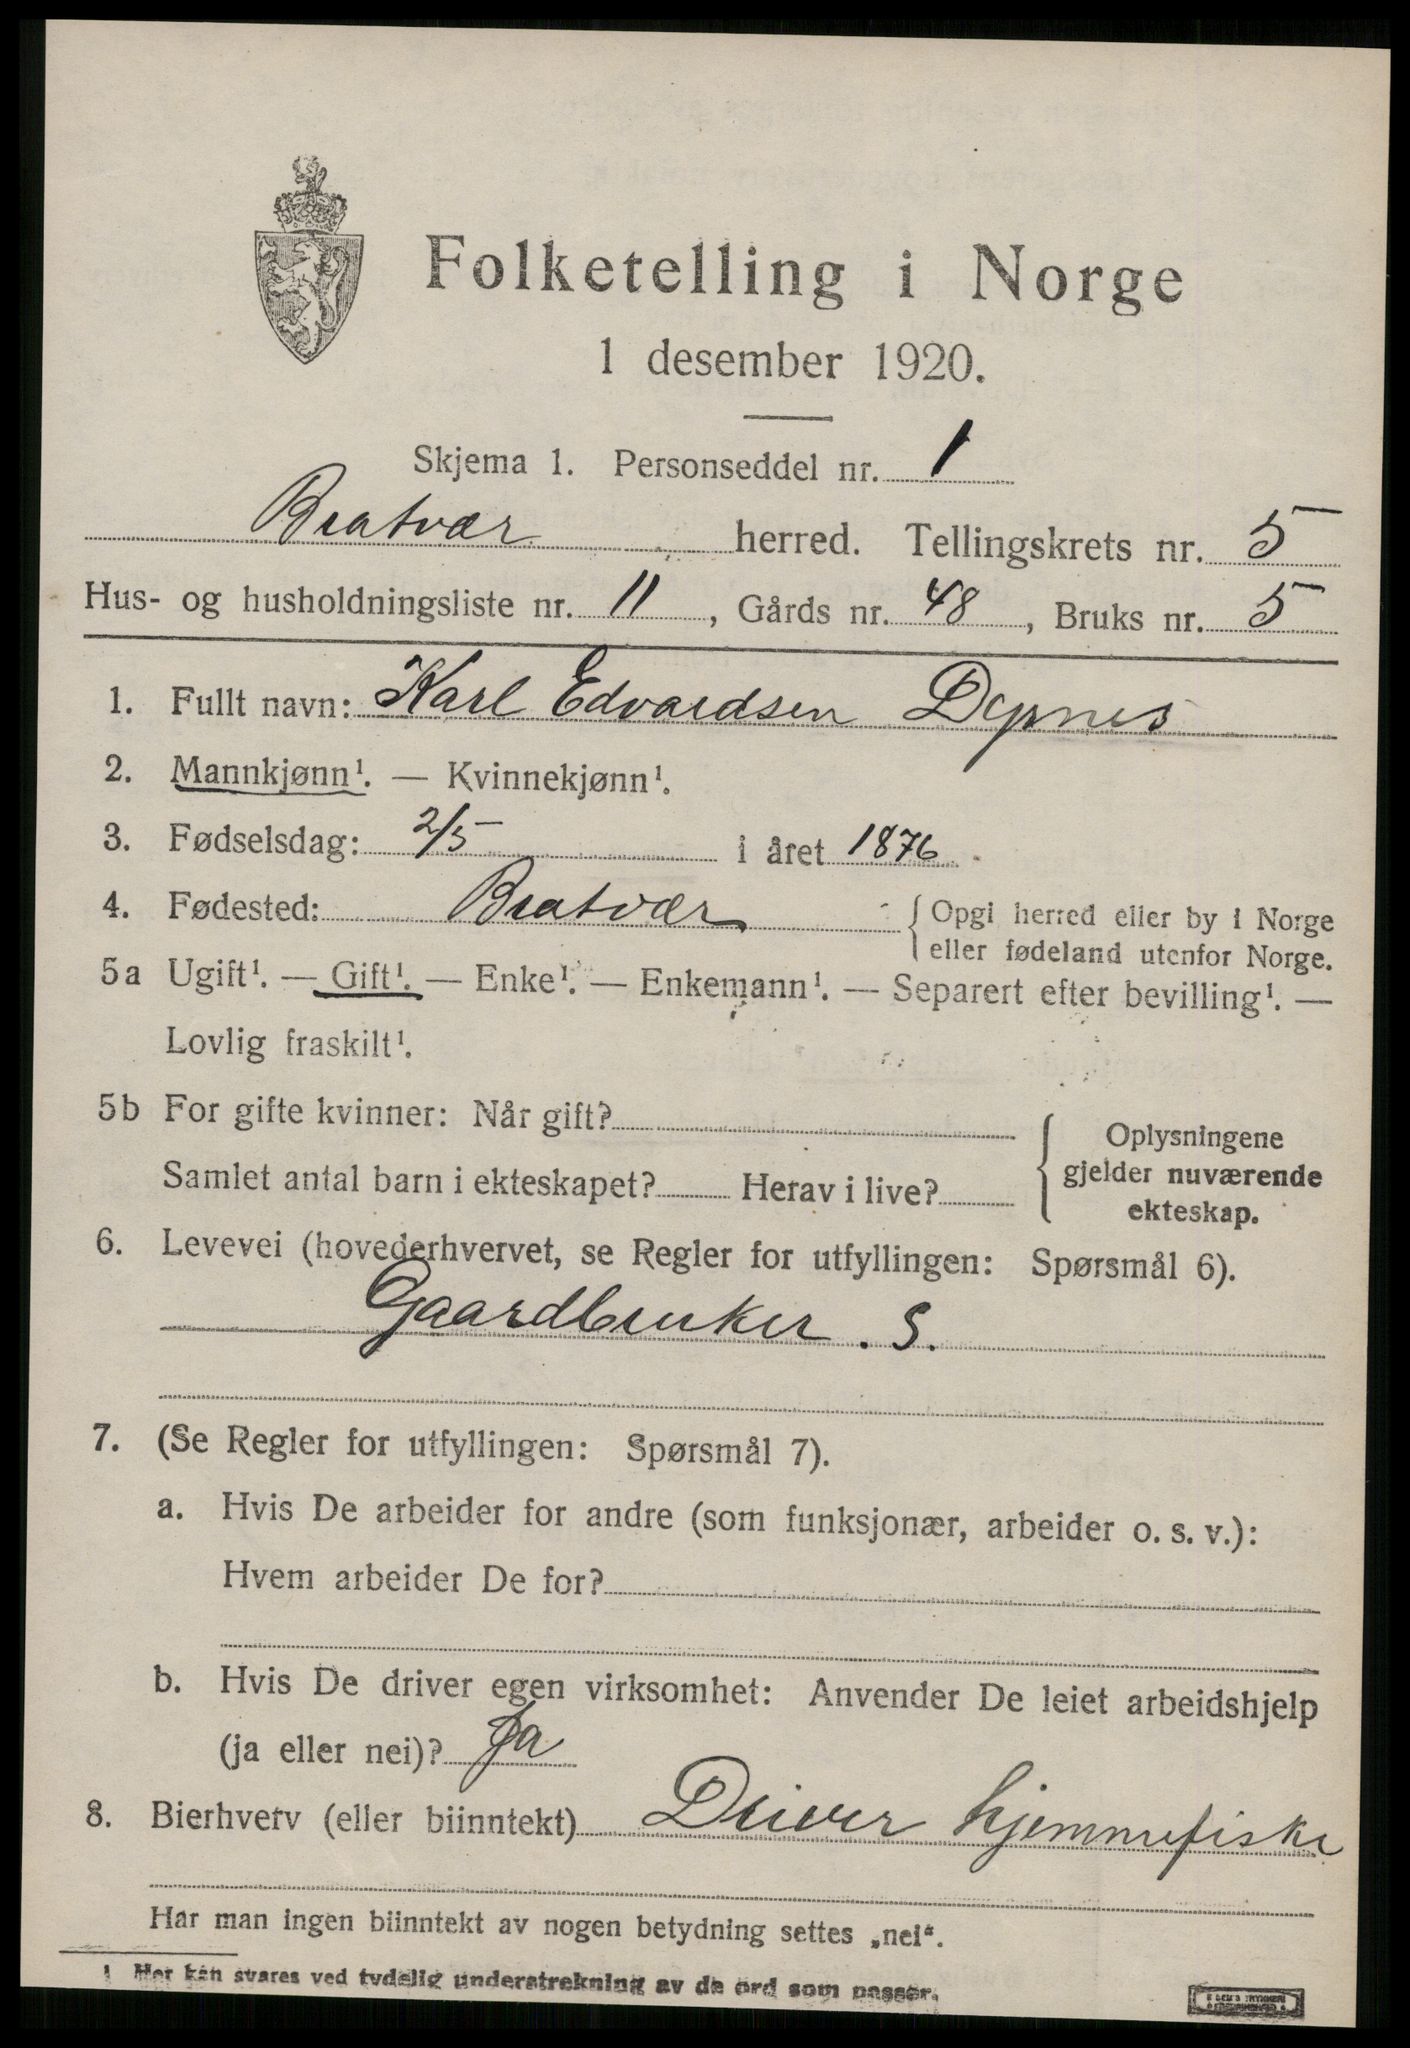 Folketelling i Norge
1 desember 1920.
Skjema 1. Personseddel nr. 1
Bratvær herred. Tellingskrets nr. 5
Hus- og husholdningsliste nr. 11, Gårds nr. 48, Bruks nr. 5
1. Fullt navn: Karl Edvardsen Dyrnes
2. Mannkjønn¹. — Kvinnekjønn¹.
3. Fødselsdag: 2/5 i året 1876
4. Fødested: Bratvær { Opgi herred eller by i Norge
eller fødeland utenfor Norge.
5a Ugift¹. — Gift¹. — Enke¹. — Enkemann¹. — Separert efter bevilling¹. —
Lovlig fraskilt¹.
5b For gifte kvinner: Når gift?
Samlet antal barn i ekteskapet? Herav i live?
Oplysningene
gjelder nuværende
ekteskap.
6. Levevei (hovederhvervet, se Regler for utfyllingen: Spørsmål 6).
Gaardbruker. S.
7. (Se Regler for utfyllingen: Spørsmål 7).
a. Hvis De arbeider for andre (som funksjonær, arbeider o. s. v.):
Hvem arbeider De for?
b. Hvis De driver egen virksomhet: Anvender De leiet arbeidshjelp
(ja eller nei)? Ja
8. Bierhverv (eller biinntekt) Driver hjemmefiske
Har man ingen biinntekt av nogen betydning settes „nei“.
1 Her kan svares ved tydelig understrekning av de ord som passer.